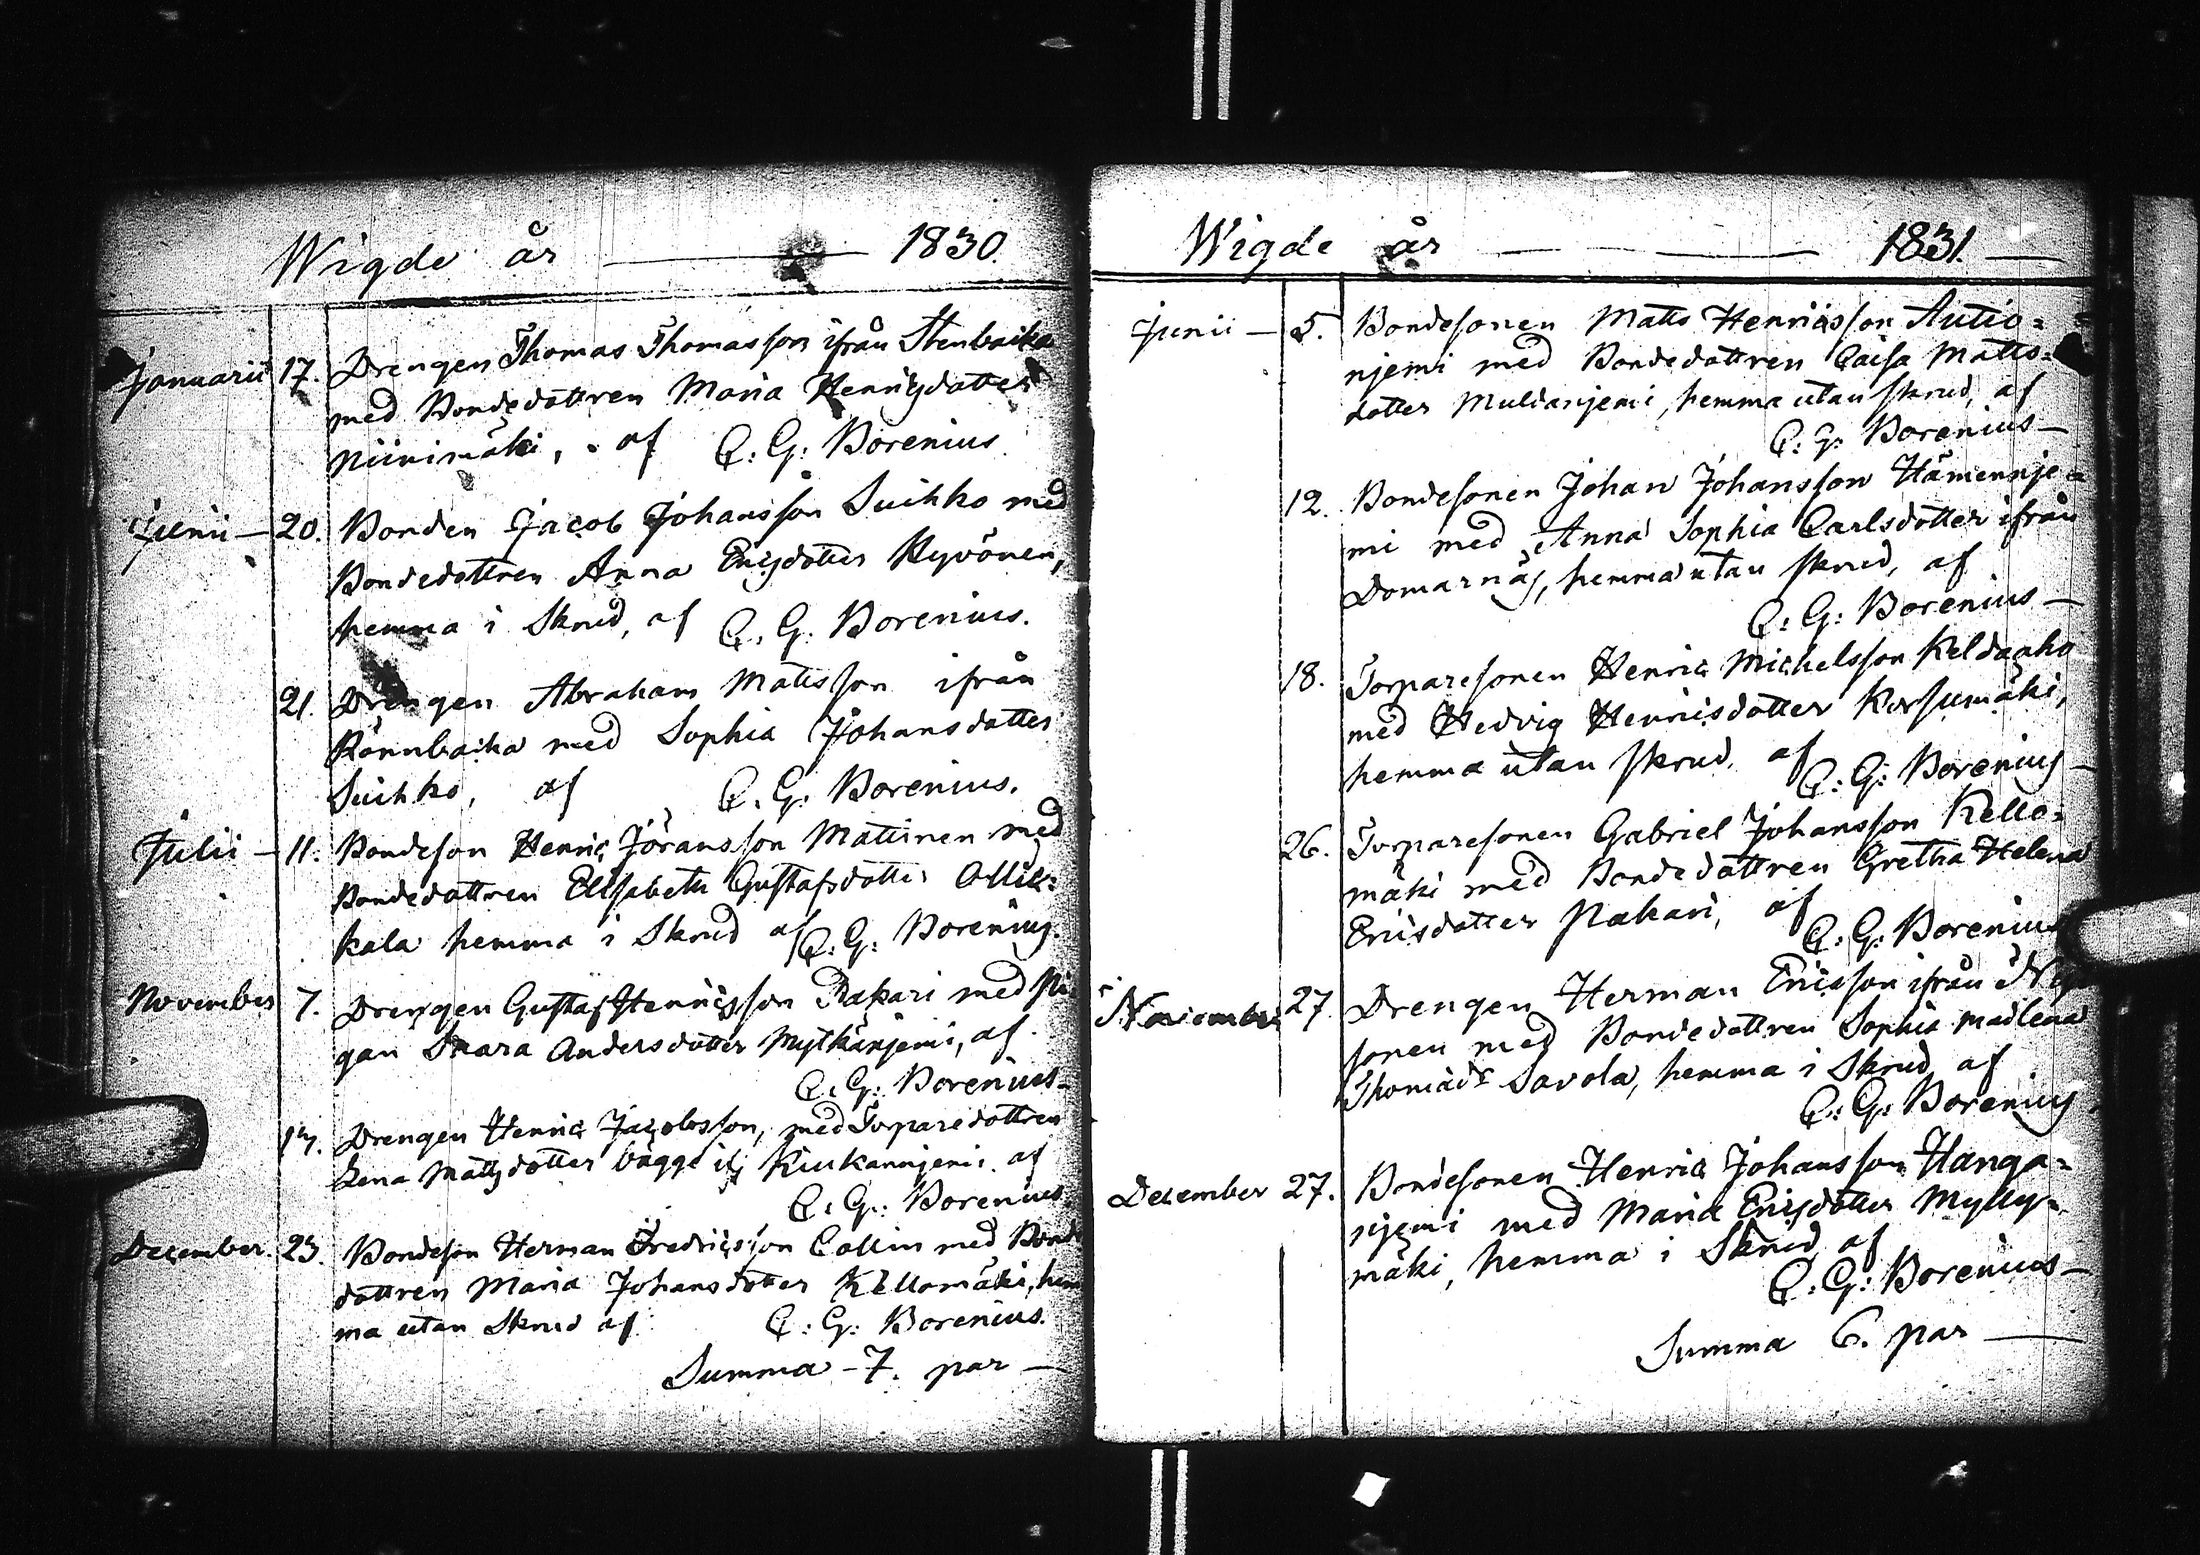 Wigde år — 1830.
Januarii 17. Drengen Thomas Thomasson ifrån Stenbacka
med Bondedottren Maria Henricsdotter
Niinimäki, af C. G: Borenius
Junii — 20. Bonden Jacob Johansson Suihko med
Bondedottren Anna Ericsdotter Hyvönen,
hemma i Skrud, af C. G: Borenius.
21. Drengen Abraham Matisson ifrån
Rönnbacka med Sophia Johansdotter
Suihko, af C. G: Borenius.
Julii — 11. Bondeson Henric Jöransson Mattinen med
Bondedottren Elisabeth Gustafsdotter Ollik=
kala hemma i Skrud af C: G: Borenius.
November 7. Drengen Gustaf Henricsson Pakari med Pi
gan Saara Andersdotter Mytkänjemi, af
C: G: Borenius —
14. Drengen Henric Jacobsson, med Torparedottren
Lena Mattsdotter bägge ifr Kiukannjemi af
C: G: Borenius
December. 23. Bondeson Herman Fredricsson Collin med Bond
dottren Maria Johansdotter Kellomäki, hem
ma utan Skrud af C: G: Borenius.
Summa — 7. par —
Wigde år — 1831. —
Junii — 5. Bondesonen Matts Henricsson Autio=
njemi med Bondedottren Caisa Matts=
dotter Muldanjemi, hemma utan skrud, af
C: G: Borenius —
12. Bondesonen Johan Johansson Hämennje=
mi med Anna Sophia Carlsdotter ifrån
Domarnäs, hemma utan skrud, af
C: G: Borenius —
18. Torparesonen Henric Michelsson Keldaaho
med Hedvig Henricsdotter Korsumäki,
hemma utan skrud, af C: G: Borenius —
26. Torparesonen Gabriel Johansson Kello=
mäki med Bondedottren Gretha Helena
Ericsdotter Pakari, af
C: G: Borenius
November 27. Drengen Herman Ericsson ifrån
sonen med Bondedottren Sophia Madlena
Thomædr Savola, hemma i Skrud af
C: G: Borenius
December 27. Bondesonen Henric Johansson Hanga=
njemi med Maria Ericsdotter Mylly=
mäki, hemma i Skrud af
C. G: Borenius —
Summa 6. par —